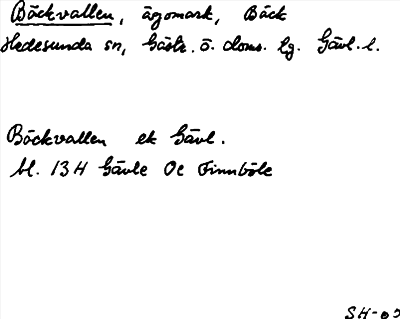 Bäckvallen, ägomark, Bäck
Hedesunda sn, Gästr. ö. doms. lg. Gävl. l.
Bäckvallen ek Gävl.
bl. 13H Gävle Oc Finnböle
SH-